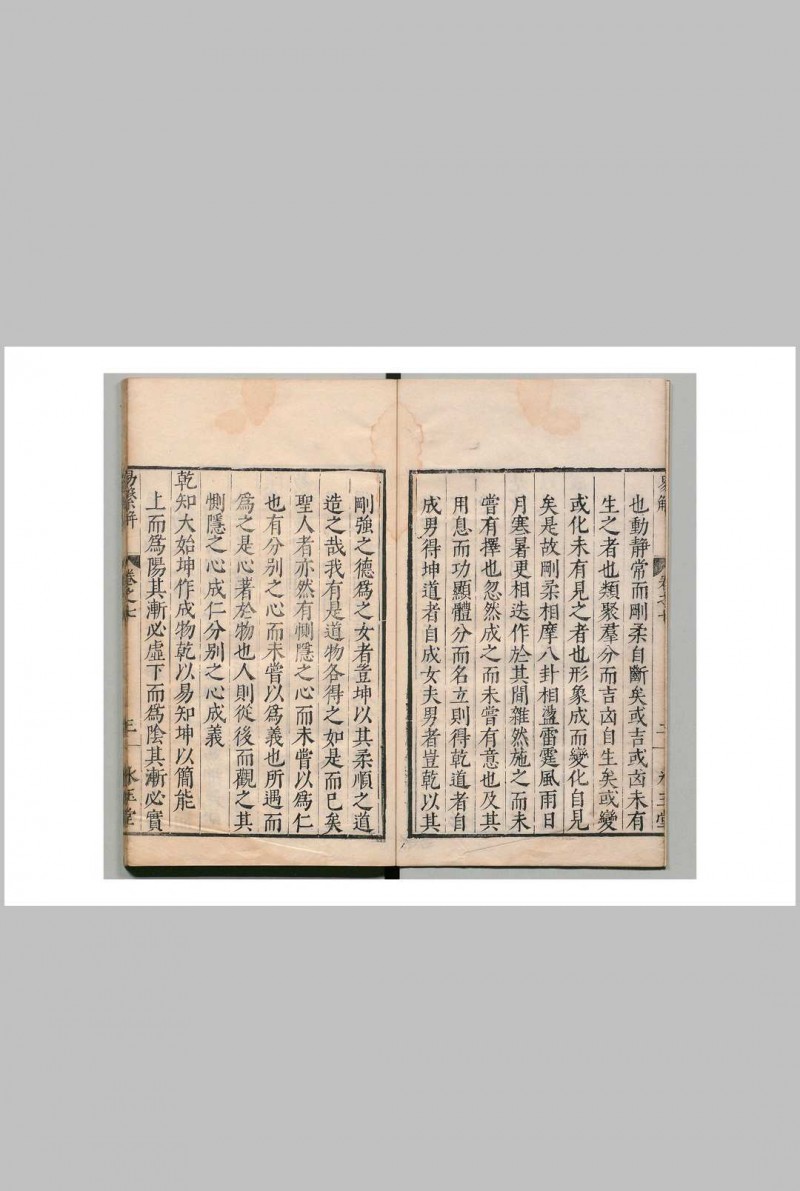 易解
卷之七
二
冰玉堂
也動靜常而剛柔自斷矣或吉或凶未有
生之者也類聚羣分而吉凶自生矣或變
或化未有見之者也形象成而變化自見
矣是故剛柔相摩八卦相盪雷霆風雨日
月寒暑更相迭作於其間雜然施之而未
嘗有擇也忽然成之而未嘗有意也及其
用息而功顯體分而名立則得乾道者自
成男得坤道者自成女夫男者豈乾以其
剛強之德為之女者豈坤以其柔順之道
造之哉我有是道物各得之如是而已矣
聖人者亦然有惻隱之心而未嘗以為仁
也有分别之心而未嘗以為義也所遇而
為之是心著於物也人則從後而觀之其
惻隱之心成仁分别之心成義
乾知大始坤作成物乾以易知坤以簡能
上而為陽其漸必虛下而為陰其漸必實
易繫解
卷之七
三
冰玉堂